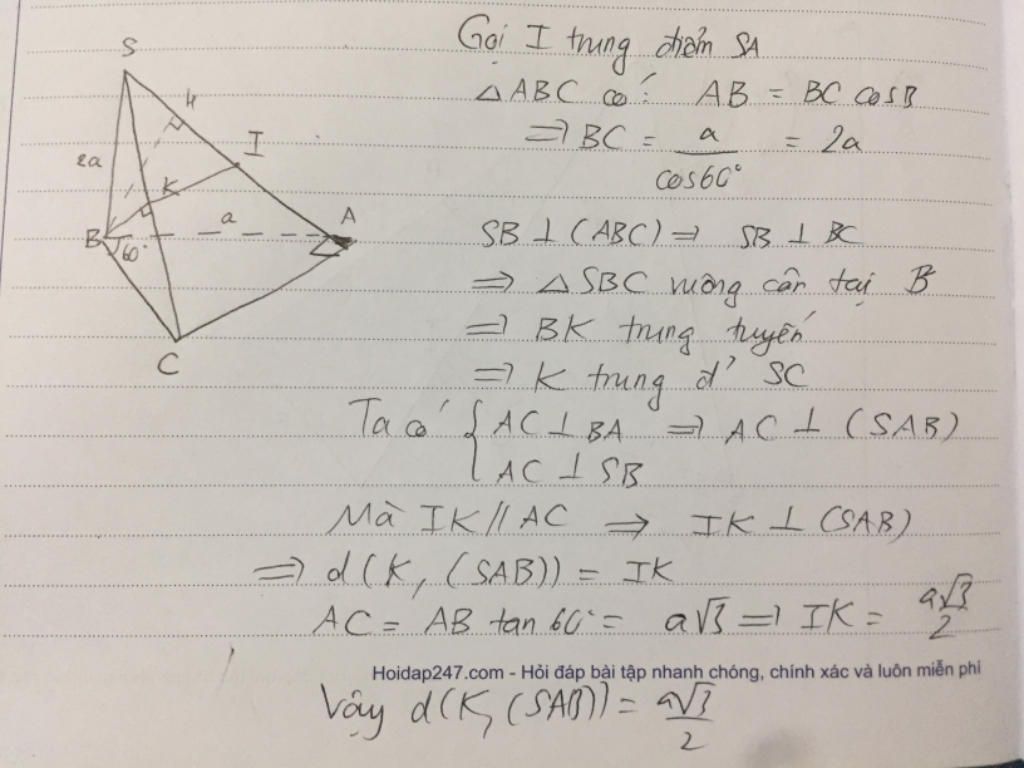 Gọi I trung điểm SA
△ABC có: AB = BC cosB
⇒ BC = a/cos60° = 2a
SB ⊥ (ABC) ⇒ SB ⊥ BC
⇒ △SBC vuông cân tại B
⇒ BK trung tuyến
⇒ K trung đ' SC
Ta có { AC ⊥ BA ⇒ AC ⊥ (SAB)
AC ⊥ SB
Mà IK // AC ⇒ IK ⊥ (SAB)
⇒ d(K, (SAB)) = IK
AC = AB tan 60° = a√3 ⇒ IK = a√3/2
Hoidap247.com - Hỏi đáp bài tập nhanh chóng, chính xác và luôn miễn phí
Vậy d(K, (SAB)) = a√3/2
S
H
I
2a
K
a
A
B
60°
C